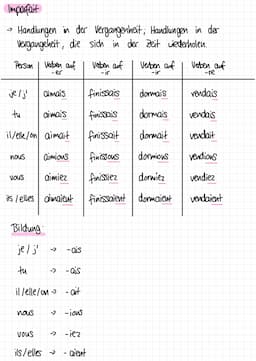 Imparfait
→ Handlungen in der Vergangenheit, Handlungen in der
Vergangeheit, die sich in der Zeit wiederholen.
Person Verben auf -er Verben auf -ir Verben auf -ir Verben auf -re
je/j' aimais finissais dormais vendais
tu aimais finissais dormais vendais
il/elle/on aimait finissait dormait vendait
nous aimions finissons dormions vendions
vous aimiez finissiez dormiez vendiez
ils/elles aimaient finissaient dormaient vendaient
Bildung:
je/j' → -ais
tu → -ais
il/elle/on → -ait
nous → -ions
vous → -iez
ils/elles → -aient